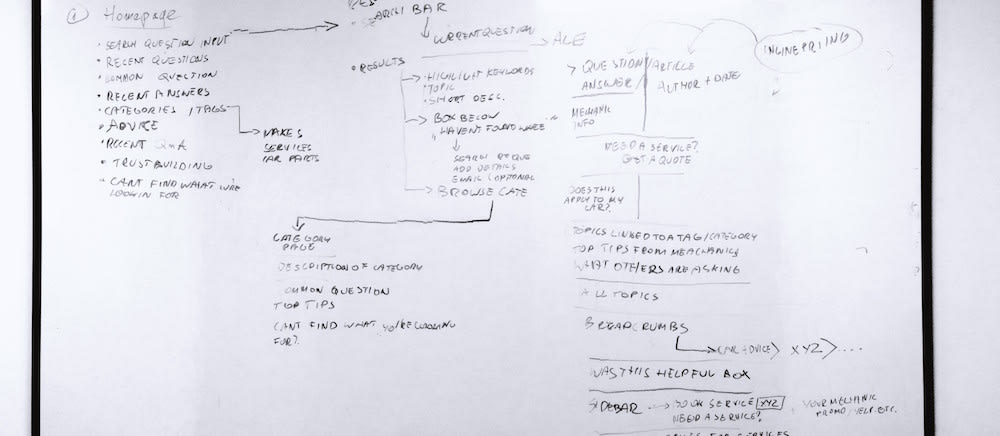 ① Homepage
• SEARCH QUESTION INPUT
• RECENT QUESTIONS
• COMMON QUESTION
• RECENT ANSWERS
• CATEGORIES / TAGS
• ADVICE
• RECENT QnA
• TRUST BUILDING
• CANT FIND WHAT
LOOKIN FOR
MAKES
SERVICES
CAR PARTS
SEARCH BAR
CURRENT QUESTION
• RESULTS
HIGHLIGHT KEYWORDS
TOPIC
• SHORT DESC.
BOX BELOW
HAVENT FOUND
ADD DETAILS
EMAIL (OPTIONAL
BROWSE CATE
CATEGORY
PAGE
DESCRIPTION OF CATEGORY
OMMON QUESTION
TOP TIPS
CANT FIND WHAT
FOR?
QUESTION/ARTICLE
ANSWER/ AUTHOR + DATE
MECHANIC
INFO
NEED A SERVICE?
GET A QUOTE
DOES THIS
APPLY TO MY
CAR?
TOPICS LINKED TO A TAG/CATEGORY
TOP TIPS FROM MEACHANICS
WHAT OTHERS ARE ASKING
ALL TOPICS
BREADCRUMBS
ADVICE> XYZ> ....
WAS THIS HELPFUL BOX
SIDEBAR
SERVICE XYZ
NEED A SERVICE?
YOUR MECHANIC
PROMO/YELP. ETC.
FOR SERVICES